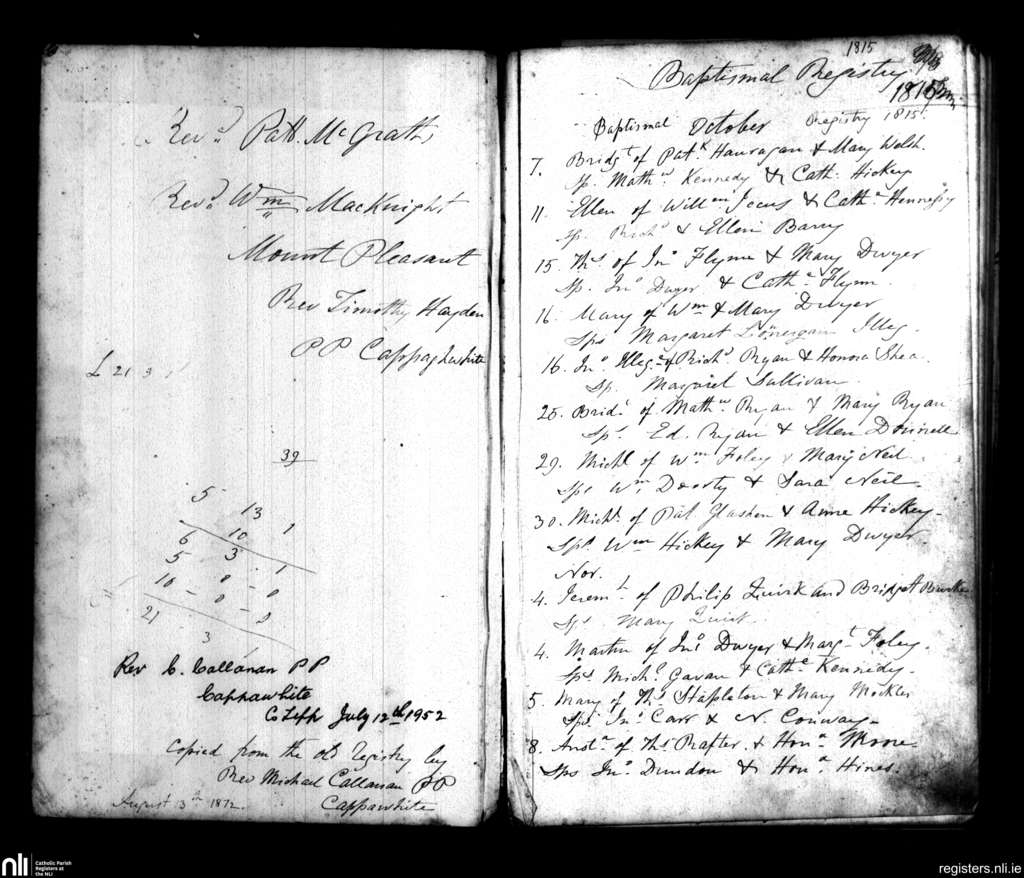 Revd Patk McGrath
Revd Wm MacKnight
Mount Pleasant
Rev Timothy Hayden
PP Cappaghwhite
£ 21 3
39
5 13
6 10 1
5 3 1
16 0 0
21 0 9
3
Rev C. Callanan PP
Cappawhite
Co Tipp July 12th 1952
Copied from the old registry by
Rev Michael Callanan PP
Cappawhite
August 3rd 1872.
1815
Baptismal Registry
1815
Baptismal October Registry 1815.
7. Bridgt of Patk Hanragan & Mary Welsh.
Sp. Mathw Kennedy & Cath. Hickey
11. Ellen of Willm & Cathe Hennessy
Sp. Richd & Ellen Barry
15. Ths of Jno Flynn & Mary Dwyer
Sp. Jno Dwyer & Cathe Flynn.
16. Mary of Wm & Mary Dwyer
Sps Margaret Lonergan Illeg.
16. Jno Illeg. of Richd Ryan & Honora Shea.
Sp. Margaret Sullivan.
25. Bridt of Mathw Ryan & Mary Ryan
Sps. Ed. Ryan & Ellen Donnell
29. Michl of Wm Foley & Mary Neil
Sps Wm & Sara Neil.
30. Michl of Pat & Anne Hickey-
Sps. Wm Hickey & Mary Dwyer.
Nov.
4. Jeremh of Philip Quirk and Bridget Burke
Sps. Mary Quirk.
4. Martin of Jno Dwyer & Margt Foley.
Sps. Michl Gavan & Cathe Kennedy.
5. Mary of Ths Stapleton & Mary Mockler
Sps. Jno Carr & N. Conway-
8. of Ths Rafter. & Hona Moore
Sps Jno Dundon & Hona Hines.
nli
Catholic Parish
Registers at
the NLI
registers.nli.ie